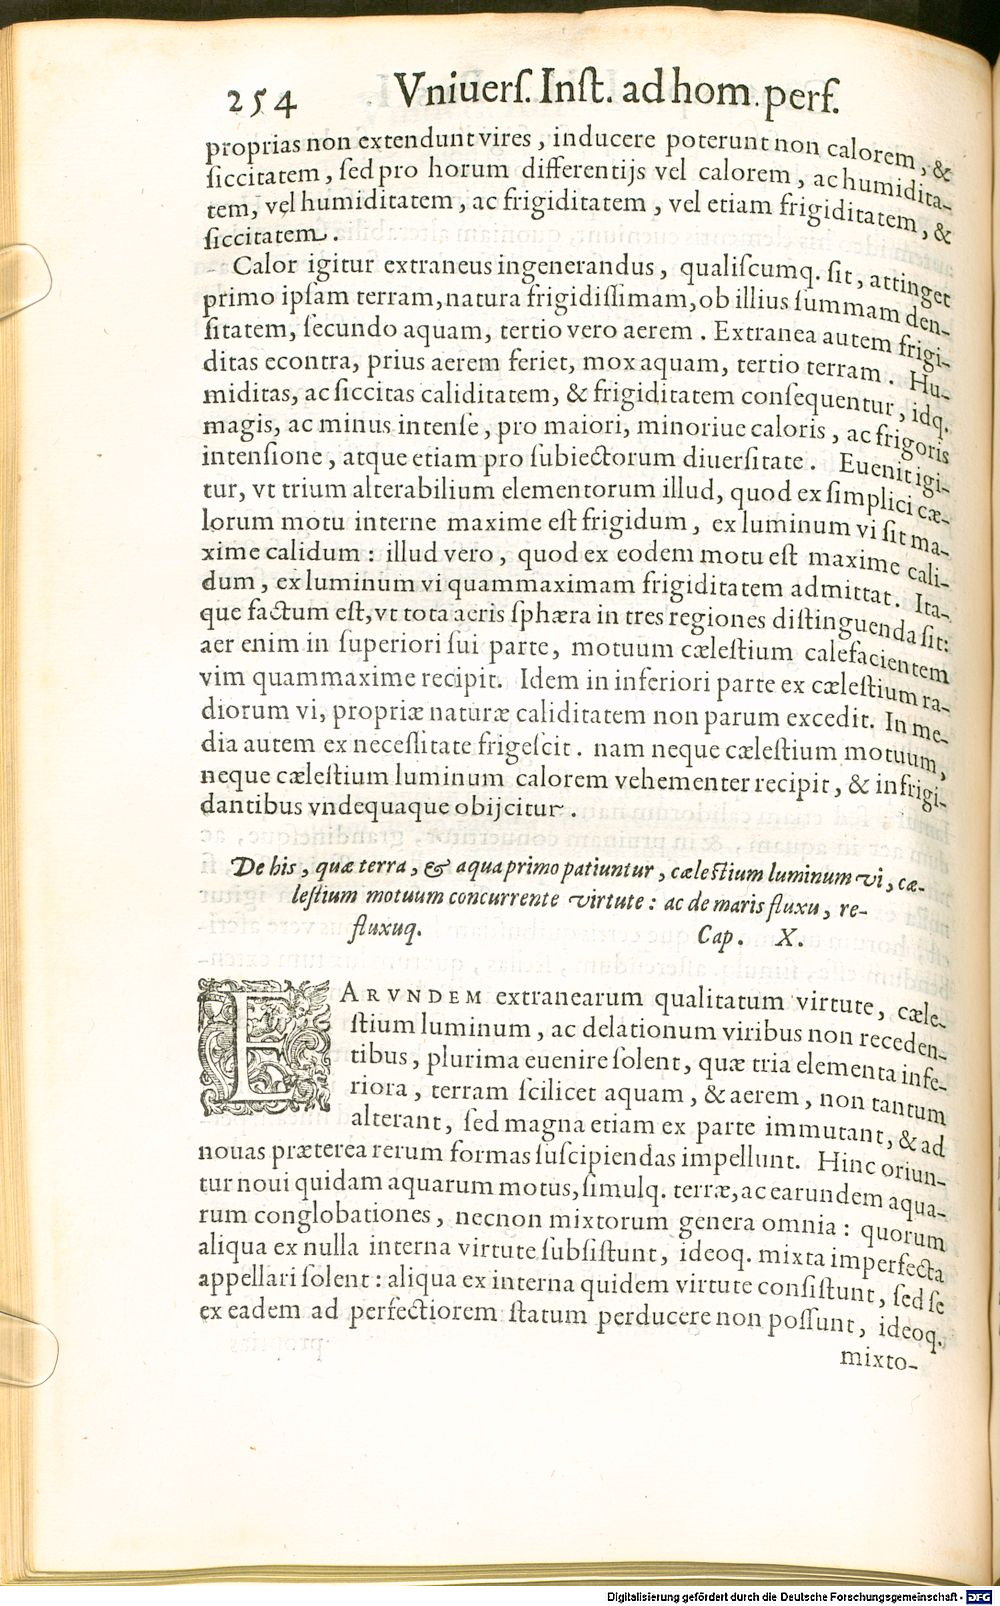 254 Vniuerſ. Inſt. ad hom. perf.
proprias non extendunt vires, inducere poterunt non calorem, &
ſiccitatem, ſed pro horum differentijs vel calorem, ac humidita-
tem, vel humiditatem, ac frigiditatem, vel etiam frigiditatem, &
ſiccitatem.
Calor igitur extraneus ingenerandus, qualiſcumq. ſit, attinget
primo ipſam terram, natura frigidiſſimam, ob illius ſummam den-
ſitatem, ſecundo aquam, tertio vero aerem. Extranea autem frigi-
ditas econtra, prius aerem feriet, mox aquam, tertio terram. Hu-
miditas, ac ſiccitas caliditatem, & frigiditatem conſequentur, idq.
magis, ac minus intenſe, pro maiori, minoriue caloris, ac frigoris
intenſione, atque etiam pro ſubiectorum diuerſitate. Euenit igi-
tur, vt trium alterabilium elementorum illud, quod ex ſimplici cæ-
lorum motu interne maxime eſt frigidum, ex luminum vi ſit ma-
xime calidum: illud vero, quod ex eodem motu eſt maxime cali-
dum, ex luminum vi quammaximam frigiditatem admittat. Ita-
que factum eſt, vt tota aeris ſphæra in tres regiones diſtinguenda ſit:
aer enim in ſuperiori ſui parte, motuum cæleſtium calefacientem
vim quammaxime recipit. Idem in inferiori parte ex cæleſtium ra-
diorum vi, propriæ naturæ caliditatem non parum excedit. In me-
dia autem ex neceſſitate frigeſcit. nam neque cæleſtium motuum,
neque cæleſtium luminum calorem vehementer recipit, & infrigi-
dantibus vndequaque obijcitur.
De his, quæ terra, & aqua primo patiuntur, cæleſtium luminum vi, cæ-
leſtium motuum concurrente virtute: ac de maris fluxu, re-
fluxuq. Cap. X.
EARVNDEM extranearum qualitatum virtute, cæle-
ſtium luminum, ac delationum viribus non receden-
tibus, plurima euenire ſolent, quæ tria elementa infe-
riora, terram ſcilicet aquam, & aerem, non tantum
alterant, ſed magna etiam ex parte immutant, & ad
nouas præterea rerum formas ſuſcipiendas impellunt. Hinc oriun-
tur noui quidam aquarum motus, ſimulq. terræ, ac earundem aqua-
rum conglobationes, necnon mixtorum genera omnia: quorum
aliqua ex nulla interna virtute ſubſiſtunt, ideoq. mixta imperfecta
appellari ſolent: aliqua ex interna quidem virtute conſiſtunt, ſed ſe
ex eadem ad perfectiorem ſtatum perducere non poſſunt, ideoq.
mixto-
Digitalisierung gefördert durch die Deutsche Forschungsgemeinschaft - DFG